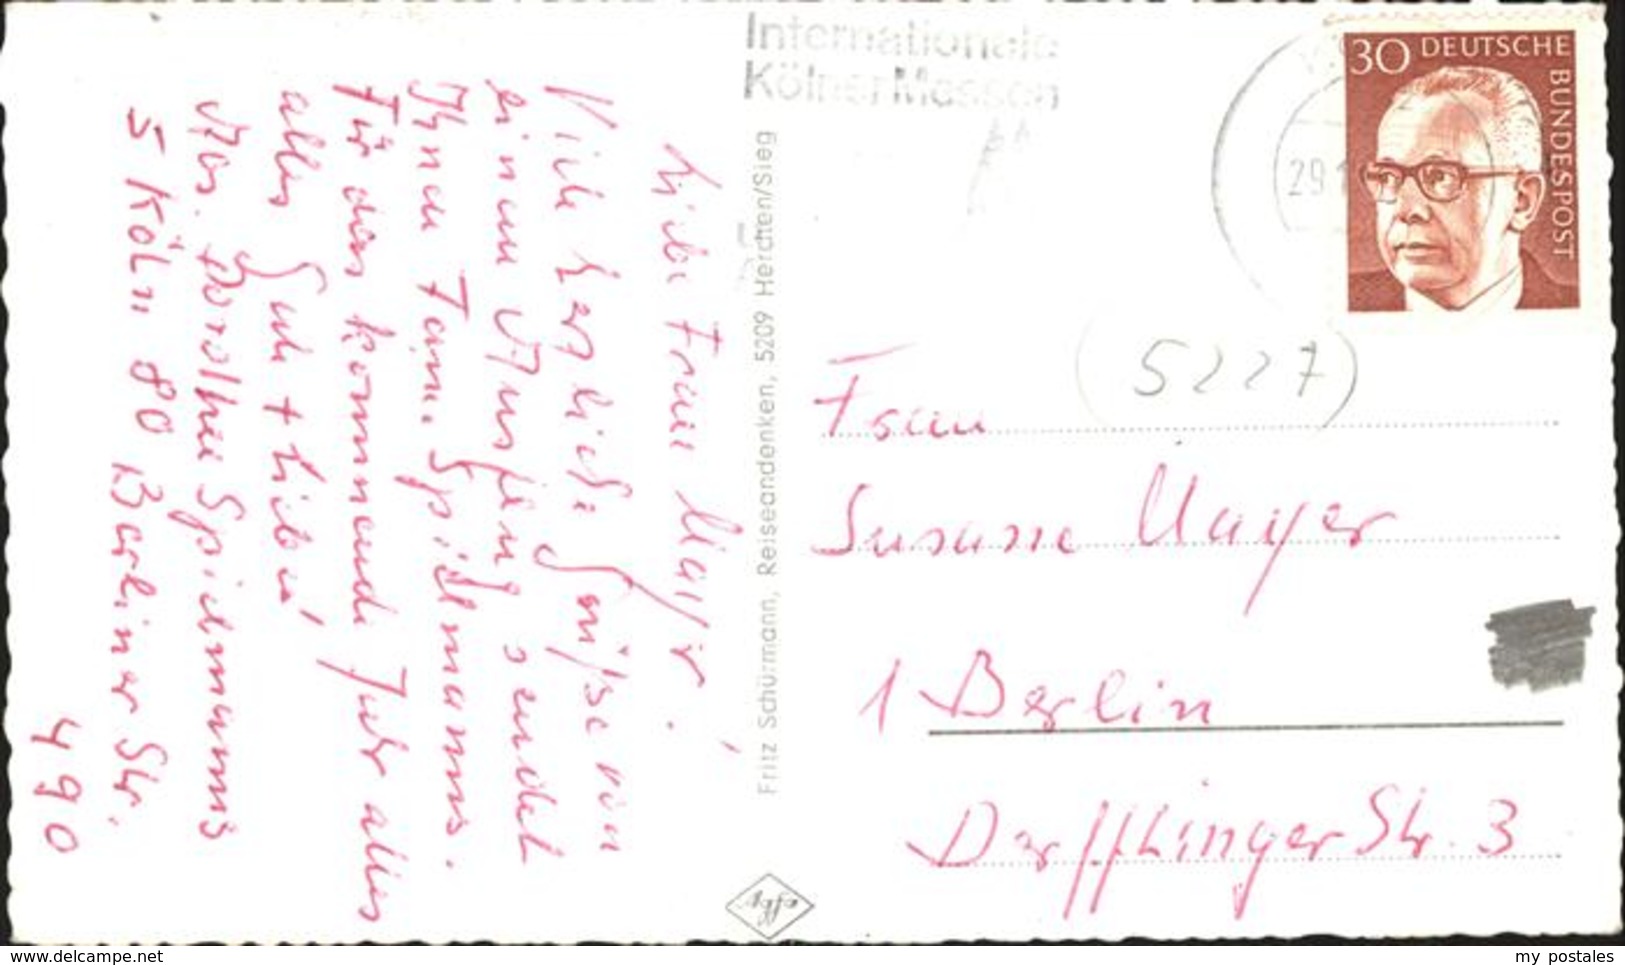 Internationale
Kölner Messen
30 DEUTSCHE
BUNDESPOST
29
Liebe Frau Mayer!
Viele herzliche Grüsse von
einem Ausflug sendet
Ihnen Fam. Spielmanns.
Für das kommende Jahr alles
alles Gute + Liebe!
Dorothee Spielmanns
5 Köln 80 Berliner Str.
490
Fritz Schürmann, Reiseandenken, 5209 Herchen/Sieg
(5227)
Frau
Susanne Mayer
1 Berlin
Derfflinger Str. 3
www.delcampe.net
my_postales